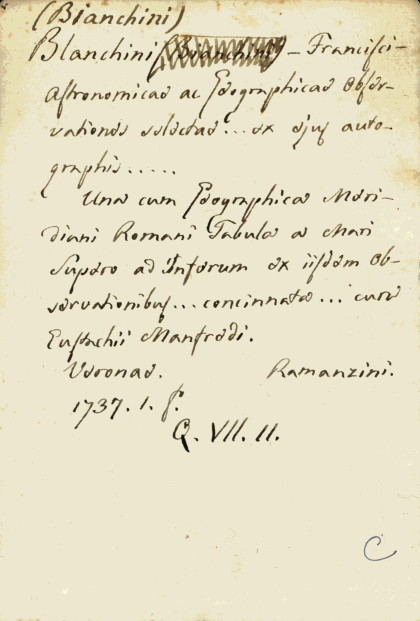 (Bianchini)
Blanchini (Bianchini) - Francisci
Astronomicae ac Geographicae Obser-
vationes selectae... ex ejus auto-
graphis.....
Una cum Geographica Meri-
diani Romani Tabula a Mari
Supero ad Inferum ex iisdem Ob-
servationibus... concinnata... cura
Eustachii Manfredi.
Veronae. Ramanzini.
1737. 1. f.
Q. VII. 11.
C